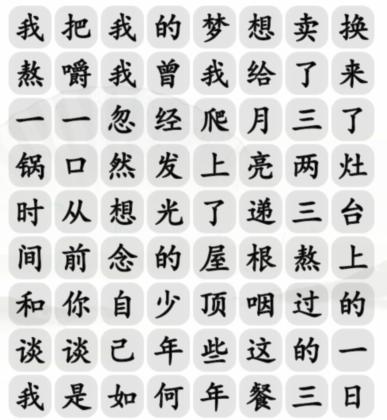 我把我的梦想卖换
熬嚼我曾我给了来
一一忽经爬月三了
锅口然发上亮两灶
时从想光了递三台
间前念的屋根熬上
和你自少顶咽过的
谈谈己年些这的一
我是如何年餐三日